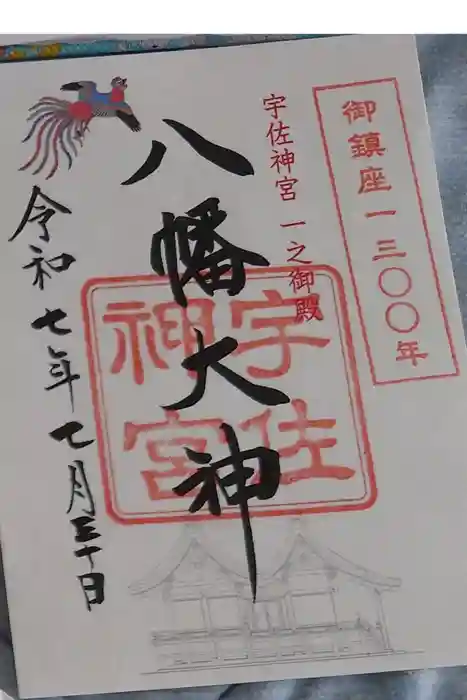 御鎮座一三〇〇年
宇佐神宮 一之御殿
八幡大神
宇佐
神宮
令和七年七月三十日